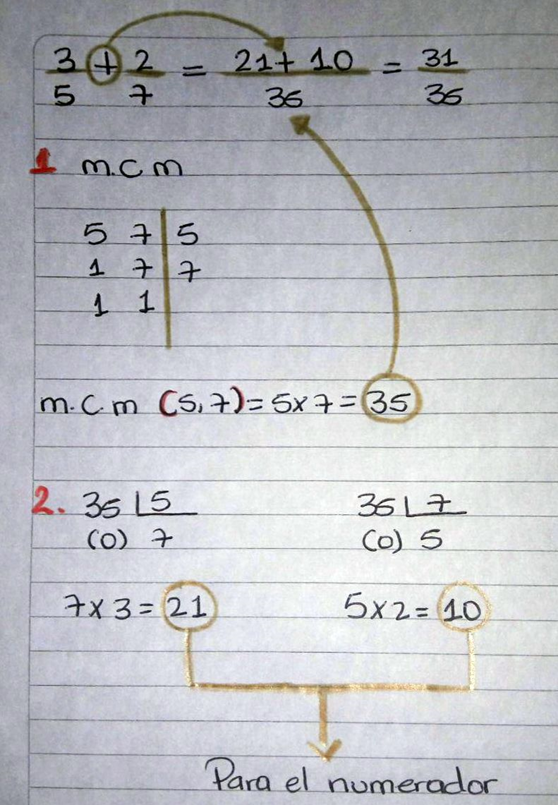 3/5 + 2/7 = (21 + 10)/35 = 31/35
1 m.c m
5 7 | 5
1 7 | 7
1 1 |
m.c.m (5,7) = 5x7 = 35
2. 35 | 5 35 | 7
(0) 7 (0) 5
7x3 = 21 5x2 = 10
Para el numerador